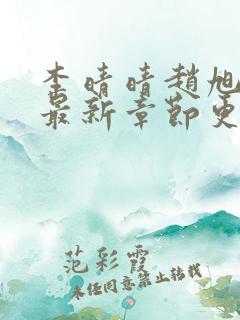 李晴晴趙旭
最新章節更
范彩霞
未经同意禁止转载